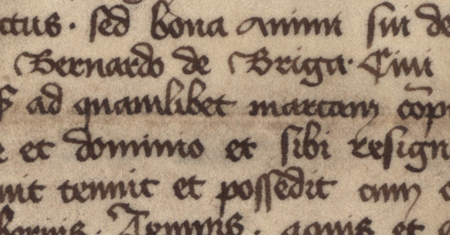 ctus · sed bona animi sui de
Bernardo de Briga · Civi
s ad quamlibet marcam cōp
e et dominio et sibi resign
uit tenuit et possedit cum
Terminis · aquis et